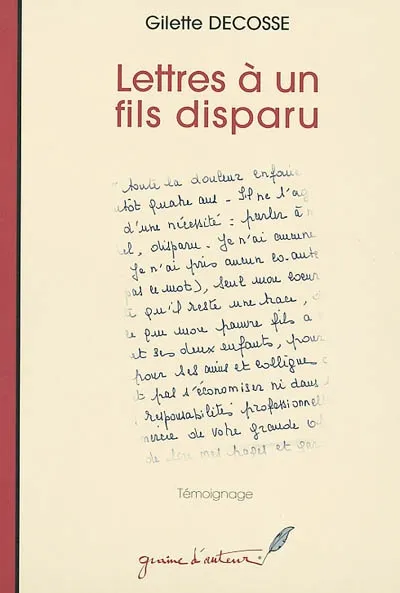 Gilette DECOSSE
Lettres à un
fils disparu
"Toute la douleur enfouie
tôt quatre ans - Il ne s'ag
d'une nécessité : parler à m
el, disparu - Je n'ai aucune
Je n'ai pris aucun co-aute
pas ce mot), seul mon coeur
qu'il reste une trace,
ce que mon pauvre fils a
et ses deux enfants, pour
pour ses amis et collègue
t pas s'économiser ni dans
responsabilités professionnelle
mercie de votre grande
de lire mes pages et
Témoignage
graine d'auteur